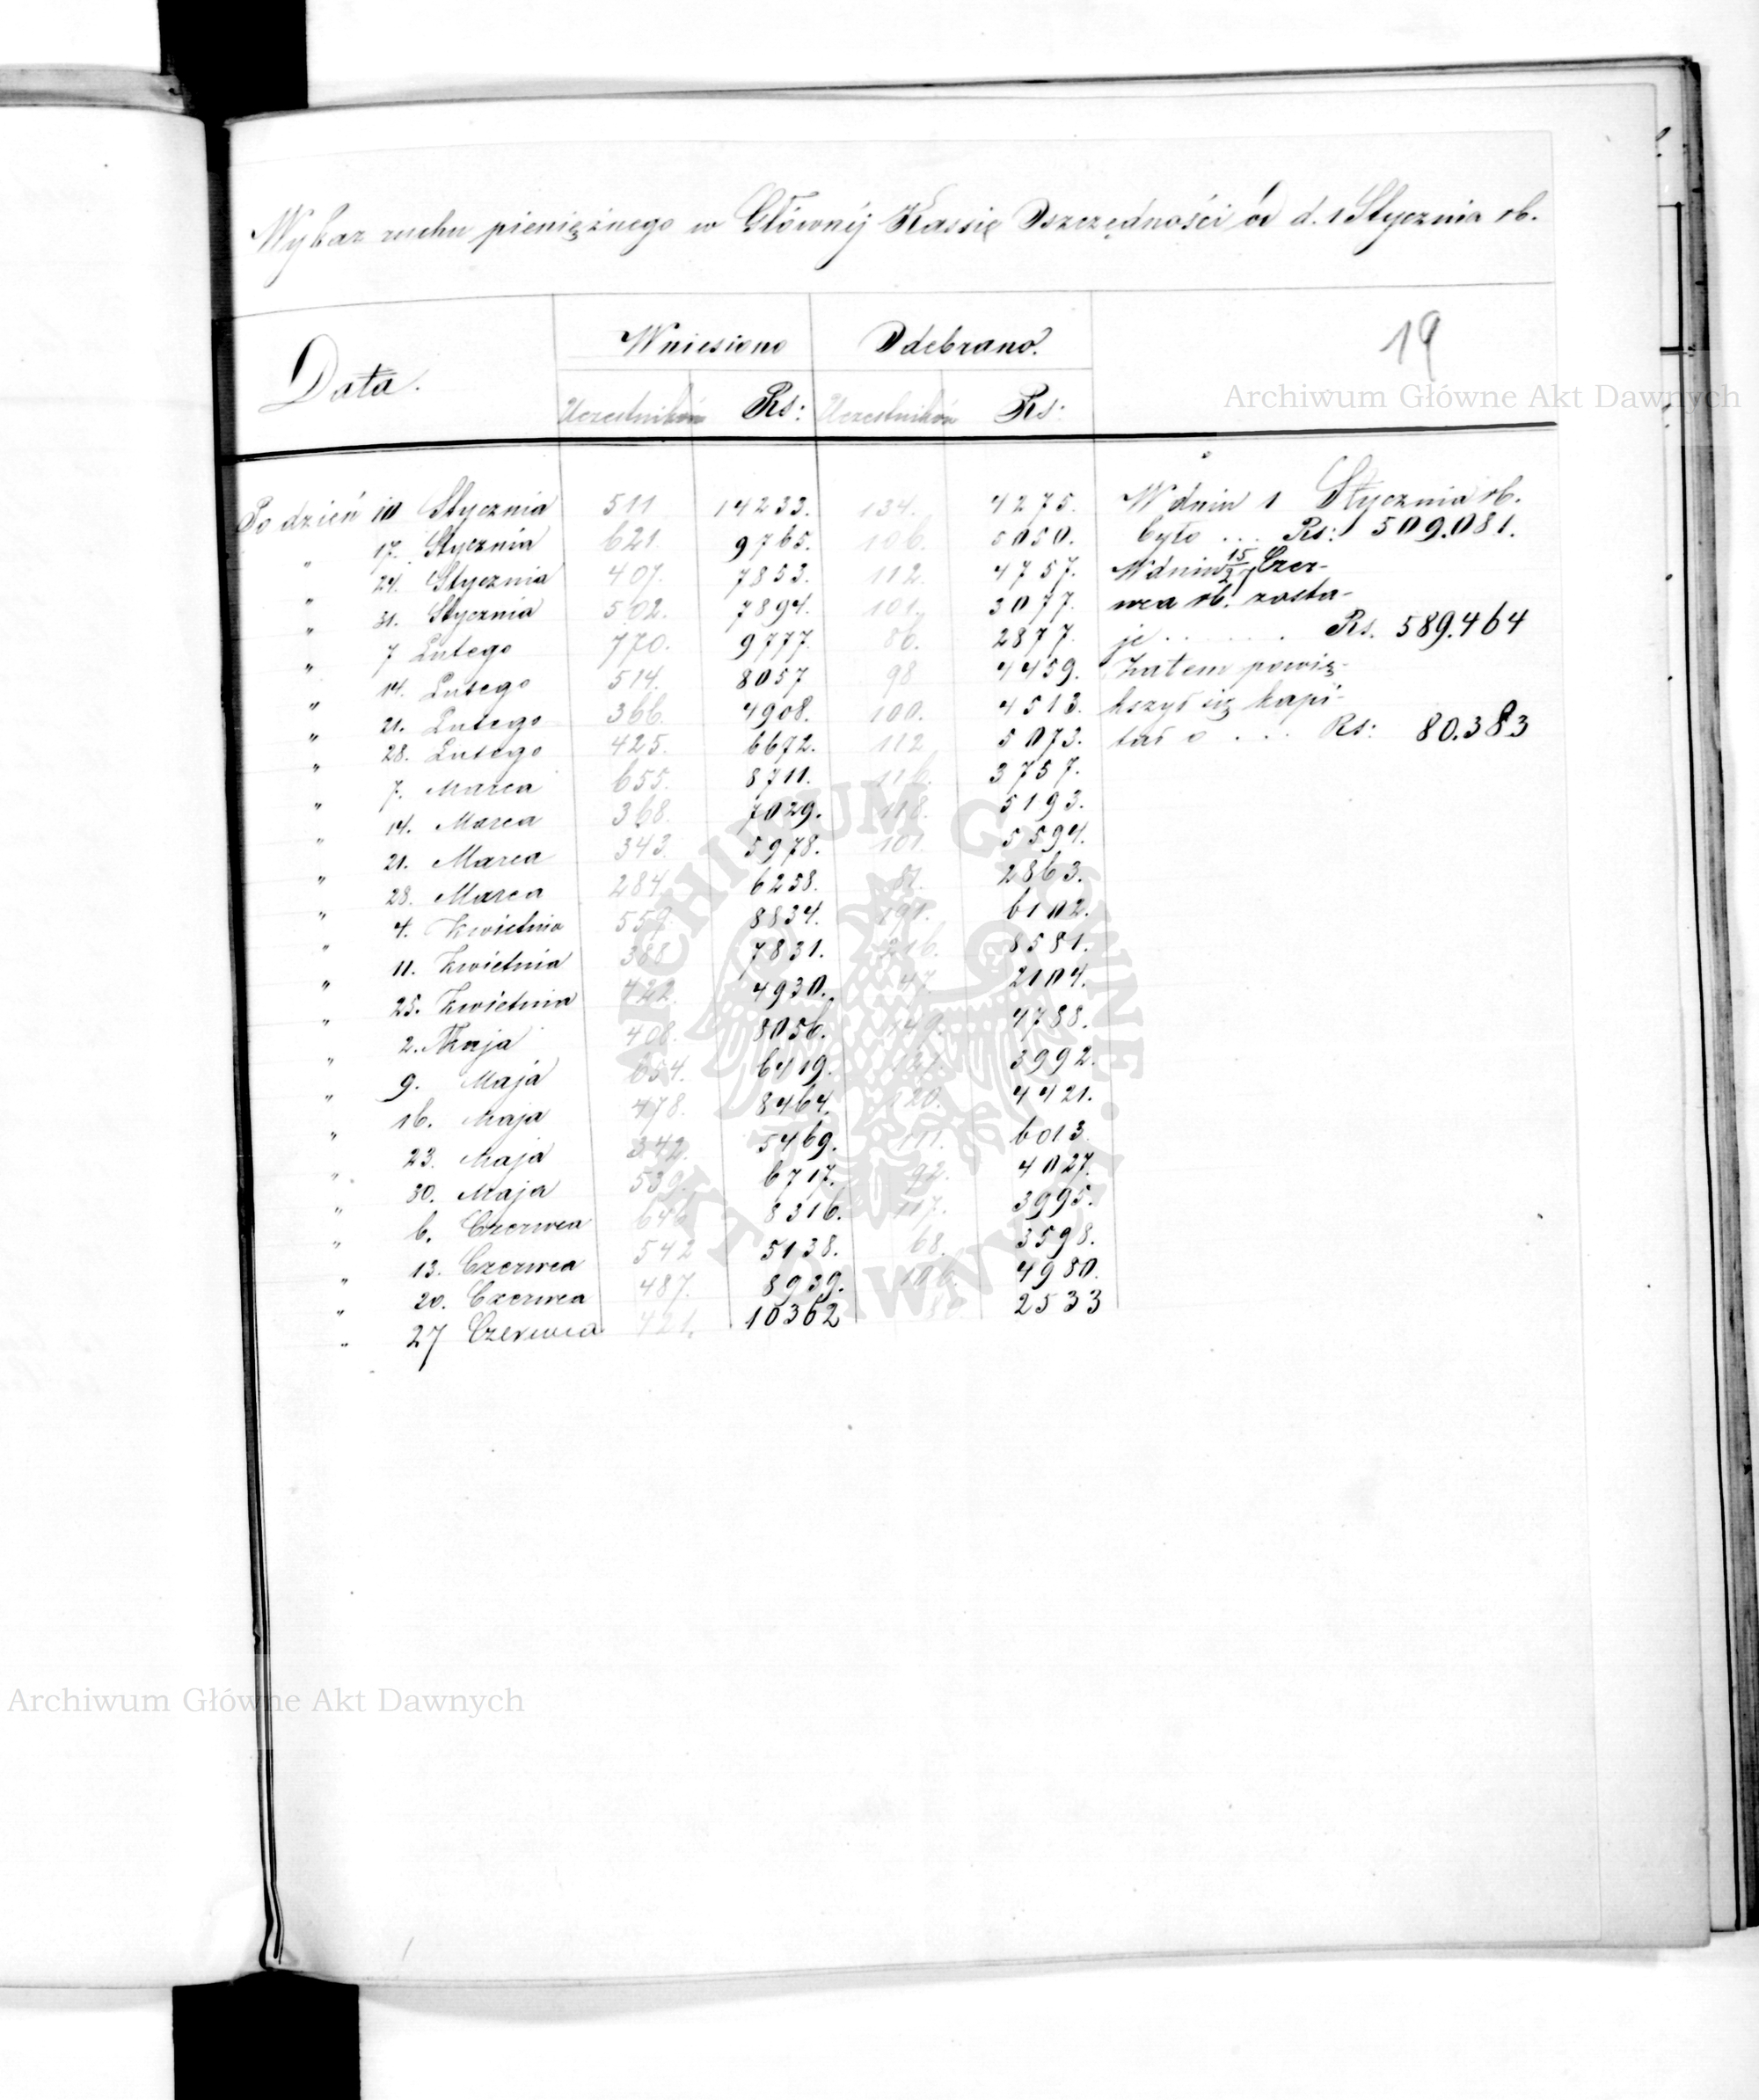 Wykaz ruchu pieniężnego w Głównéj Kassie Oszczędności od d. 1 Stycznia rb.
19
Data. Wniesiono Odebrano.
Uczestników Rs: Uczestników Rs:
Archiwum Główne Akt Dawnych
Po dzień 10 Stycznia 511 14233. 134. 4275. W dniu 1 Stycznia rb.
" 17. Stycznia 621. 9765. 106. 5050. było ... Rs: 509.081.
" 24. Stycznia 407. 7853. 112. 4757. W dniu 15/27 Czer-
" 31. Stycznia 502. 7894. 101. 3077. wca rb. zosta-
" 7 Lutego 770. 9777. 86. 2877. je . . . . . . Rs. 589.464
" 14. Lutego 514. 8057 98 4459. Zatem powię-
" 21. Lutego 366. 4908. 100. 4513. kszył się kapi-
" 28. Lutego 425. 6672. 112 5073. tał o . . . Rs: 80.383
" 7. Marca 655. 8711. 116. 3757.
" 14. Marca 368. 7029. 118. 5193.
" 21. Marca 343. 5978. 101. 5594.
" 28. Marca 284 6258. 81. 2863.
" 4. Kwietnia 559 8834. 191. 6102.
" 11. Kwietnia 388 7831. 216. 8581.
" 25. Kwietnia 422. 4930. 47. 2104.
" 2. Maja 408. 8056. 149. 4788.
" 9. Maja 654. 6419. 121. 3992.
" 16. Maja 478. 8464. 120. 4421.
" 23. Maja 342. 5469. 111. 6013
" 30. Maja 539. 6717. 92. 4027.
" 6. Czerwca 646 8316. 117. 3995.
" 13. Czerwca 542 5138. 68. 3598.
" 20. Czerwca 487. 8939. 106. 4980.
" 27 Czerwca 421. 10362 2533
ARCHIWUM GŁÓWNE AKT DAWNYCH
Archiwum Główne Akt Dawnych